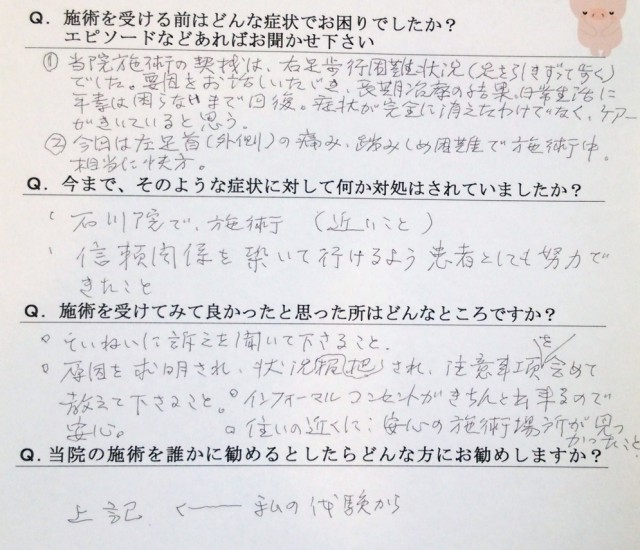 Q. 施術を受ける前はどんな症状でお困りでしたか？
エピソードなどあればお聞かせ下さい
① 当院施術の契機は、右足歩行困難状況（足を引きずって歩く）
でした。要因をお話しいただき、長期治療の結果、日常生活に
年素は困らないまで回復。症状が完全に消えたわけでなく、ケアー
がきいていると思う。
② 今回は左足首（外側）の痛み、踏みしめ困難で施術中。
相当に快方。
Q. 今まで、そのような症状に対して何か対処はされていましたか？
石川院で、施術（近いこと）
信頼関係を築いて行けるよう患者としても努力で
きたこと
Q. 施術を受けてみて良かったと思った所はどんなところですか？
ていねいに訴えを聞いて下さること.
原因を求明され、状況把握され、注意事項を含めて
教えて下さること。 インフォームルコンセントがきちんと出来るので
安心。 住いの近くに：安心の施術場所が見つ
かったこと
Q. 当院の施術を誰かに勧めるとしたらどんな方にお勧めしますか？
上記 ← 私の体験から